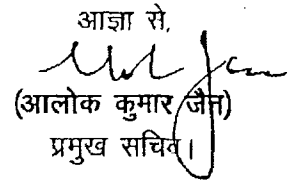 आज्ञा से,
(आलोक कुमार जैन)
प्रमुख सचिव।